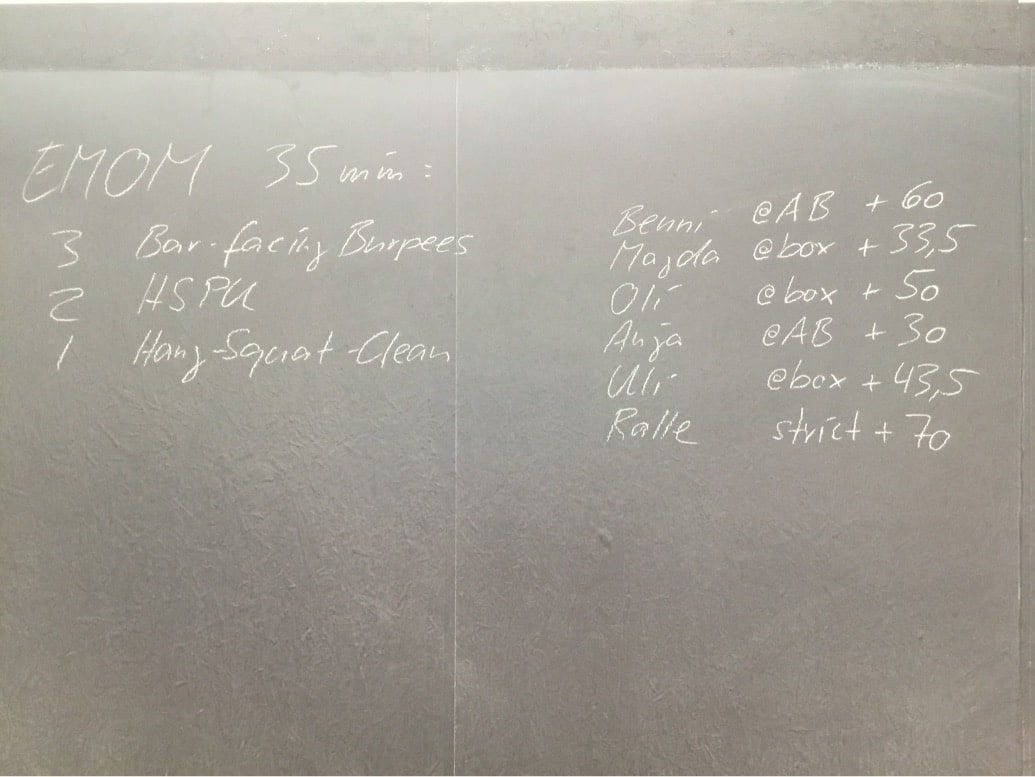 EMOM 35 min:
3 Bar-facing Burpees
2 HSPU
1 Hang-Squat-Clean
Benni @AB + 60
Magda @box + 33,5
Oli @box + 50
Anja @AB + 30
Uli @box + 43,5
Ralle strict + 70